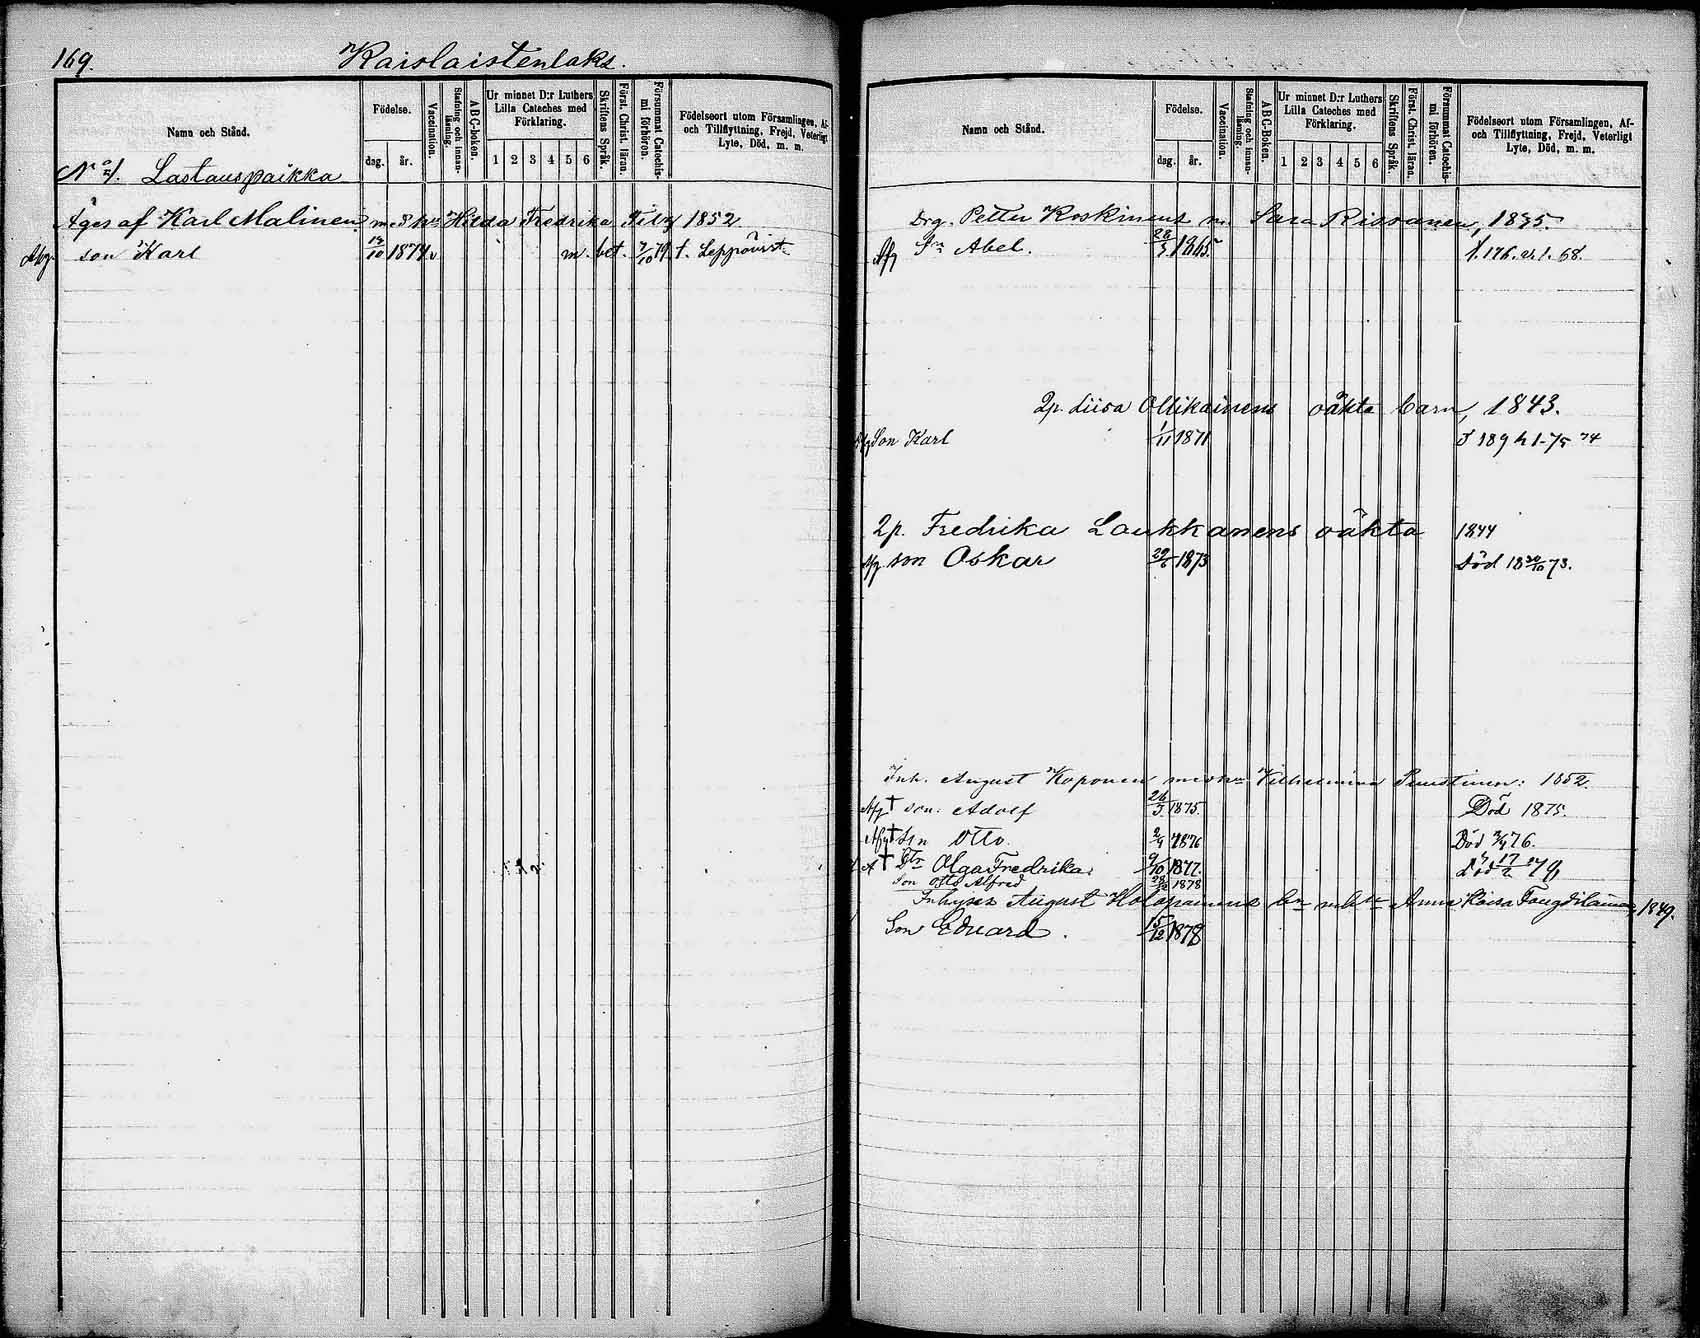 169. Kaislaistenlaks.
Namn och Stånd.
Födelse.
dag. år.
Vaccination.
Stafning och innan-läsning.
ABC-boken.
Ur minnet D:r Luthers Lilla Cateches med Förklaring.
1 2 3 4 5 6
Skriftens Språk.
Först. Christ. läran.
Försummat Catechis-mi förhören.
Födelseort utom Församlingen, Af- och Tillflyttning, Frejd, Veterligt Lyte, Död, m. m.
Lastauspaikka
Äges af Karl Malinen m. s. hu Hilda Fredrika 1852
son Karl 13/10 1874 m. bet. 7/10 79. t. Leppävirt
Namn och Stånd.
Födelse.
dag. år.
Vaccination.
Stafning och innan-läsning.
ABC-Boken.
Ur minnet D:r Luthers Lilla Cateches med Förklaring.
1 2 3 4 5 6
Skriftens Språk.
Först. Christ. läran.
Försummat Catechis-mi förhören.
Födelseort utom Församlingen, Af- och Tillflyttning, Frejd, Veterligt Lyte, Död, m. m.
Drg. Petter Koskinens m. Sara Rissanen, 1835.
Afg Sn Abel. 1865.
2p. Liisa Ollikainens oäkta barn, 1843.
Son Karl 1/11 1871
2p. Fredrika Laukkanens oäkta 1844
Afg son Oskar 29/6 1873 Död 18 30/10 73.
Inh. August Koponen med hu Vilhelmina Puustinen: 1852.
Afg † son: Adolf 26/3 1875. Död 1875.
Afg † Sn Otto. 2/4 1876 Död 76.
† Dtr Olga Fredrika. 9/10 1877. Död 17/2 79
Son Otto Alfred 1878
Inhyses August Holopainens bn m hu Anna Kaisa 1849.
Son Eduard. 15/12 1878